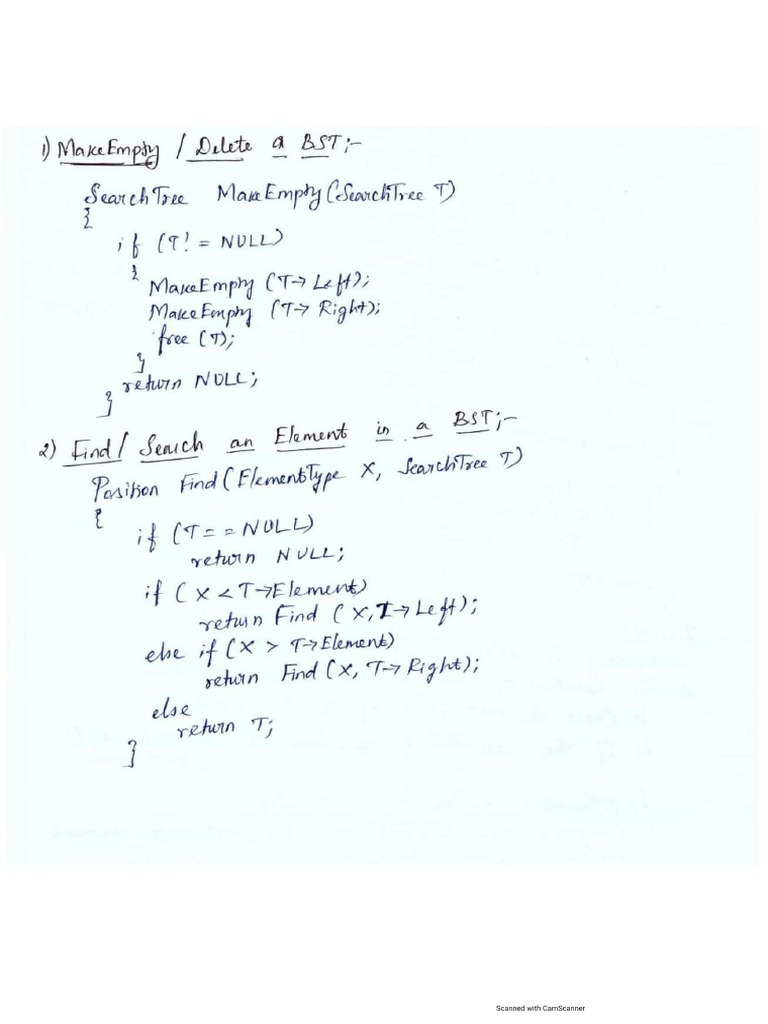 1) MakeEmpty / Delete a BST;-
SearchTree MakeEmpty(SearchTree T)
{
if (T! = NULL)
{
MakeEmpty (T→ Left);
MakeEmpty (T→ Right);
free (T);
}
return NULL;
}
2) Find / Search an Element in a BST;-
Position Find (ElementType X, SearchTree T)
{
if (T = = NULL)
return NULL;
if ( X < T→Element)
return Find ( X, T→ Left);
else if ( X > T→Element)
return Find (X, T→ Right);
else
return T;
}
Scanned with CamScanner